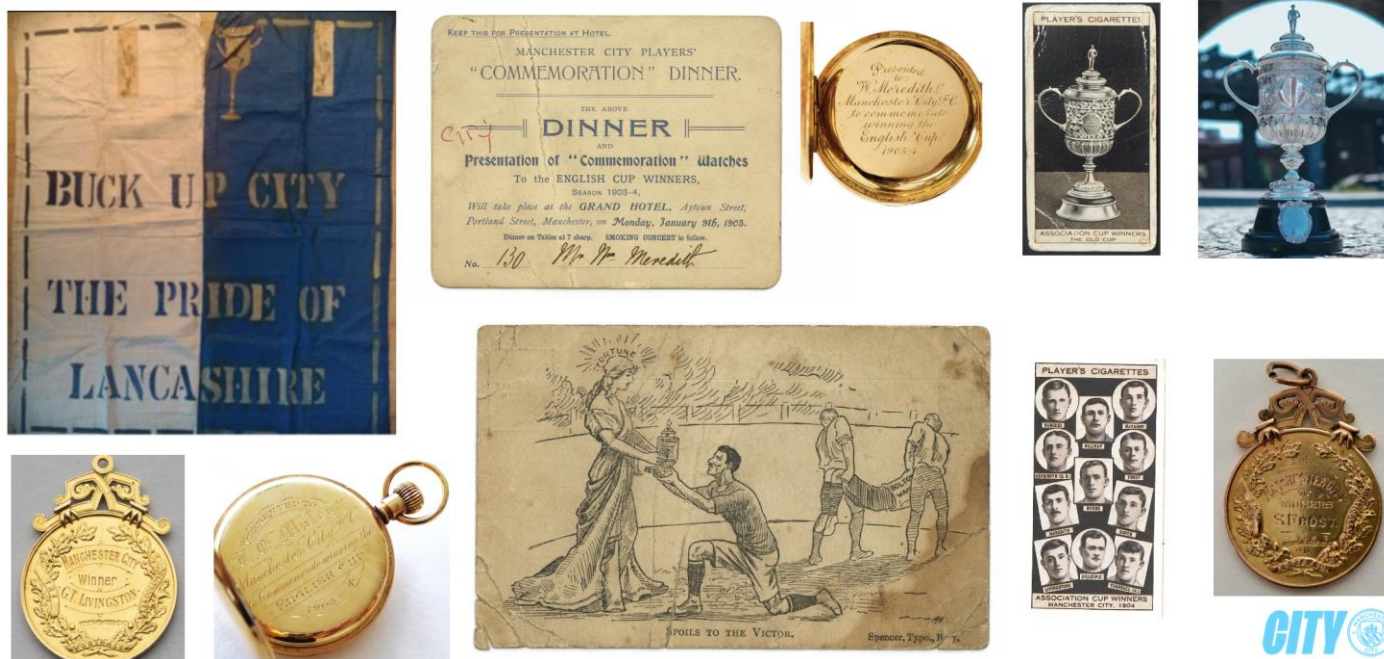 BUCK UP CITY
THE PRIDE OF
LANCASHIRE
KEEP THIS FOR PRESENTATION AT HOTEL.
MANCHESTER CITY PLAYERS'
"COMMEMORATION" DINNER.
THE ABOVE
CITY
DINNER
AND
Presentation of "Commemoration" Watches
To the ENGLISH CUP WINNERS,
SEASON 1903-4,
Will take place at the GRAND HOTEL, Aytoun Street,
Portland Street, Manchester, on Monday, January 9th, 1905.
Dinner on Tables at 7 sharp. SMOKING CONCERT to follow.
No. 130. Mr Wm Meredith
Presented
to
W. Meredith
Manchester City F.C
to commemorate
winning the
English Cup.
1903-4
PLAYER'S CIGARETTES
ASSOCIATION CUP WINNERS
THE OLD CUP
MANCHESTER CITY
Winner
G.T. LIVINGSTON
PRESENTED TO
Manchester City F.C.
to Commemorate winning the
ENGLISH CUP
FORTUNE
BOLTON
SPOILS TO THE VICTOR.
Spencer, Typo.,
PLAYER'S CIGARETTES
ASSOCIATION CUP WINNERS
MANCHESTER CITY, 1904
WINNERS
S FROST
CITY
MANCHESTER
CITY